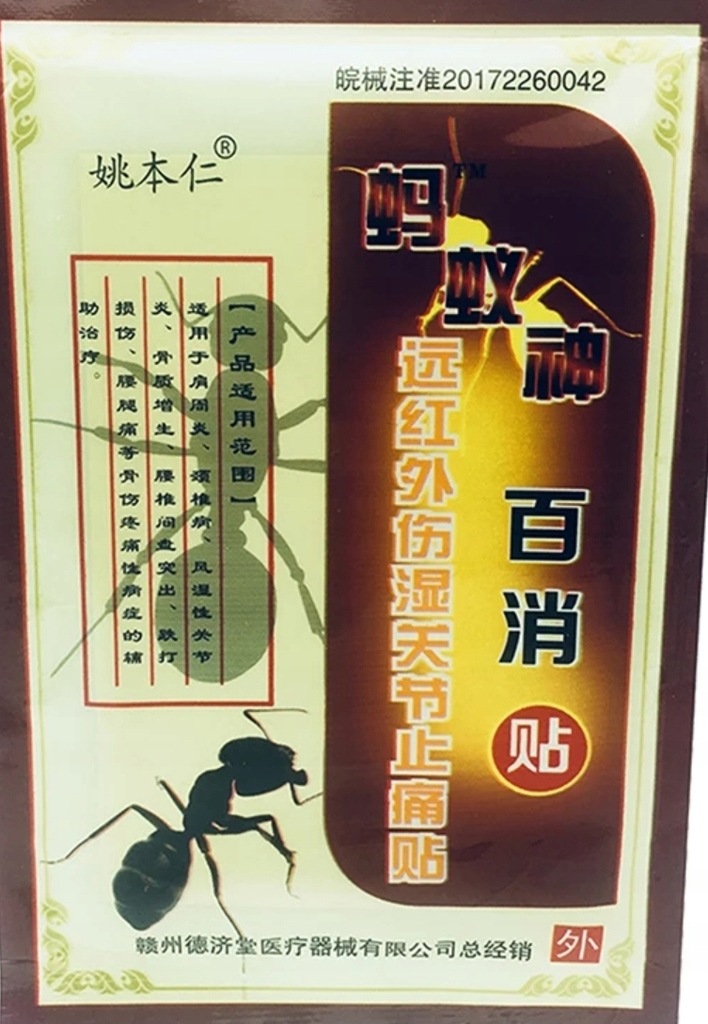 皖械注准20172260042
姚本仁®
蚂蚁神™
百消贴
远红外伤湿关节止痛贴
【产品适用范围】
适用于肩周炎、颈椎病、风湿性关节
炎、骨质增生、腰椎间盘突出、跌打
损伤、腰腿痛等骨伤疼痛性病症的辅
助治疗。
赣州德济堂医疗器械有限公司总经销
外